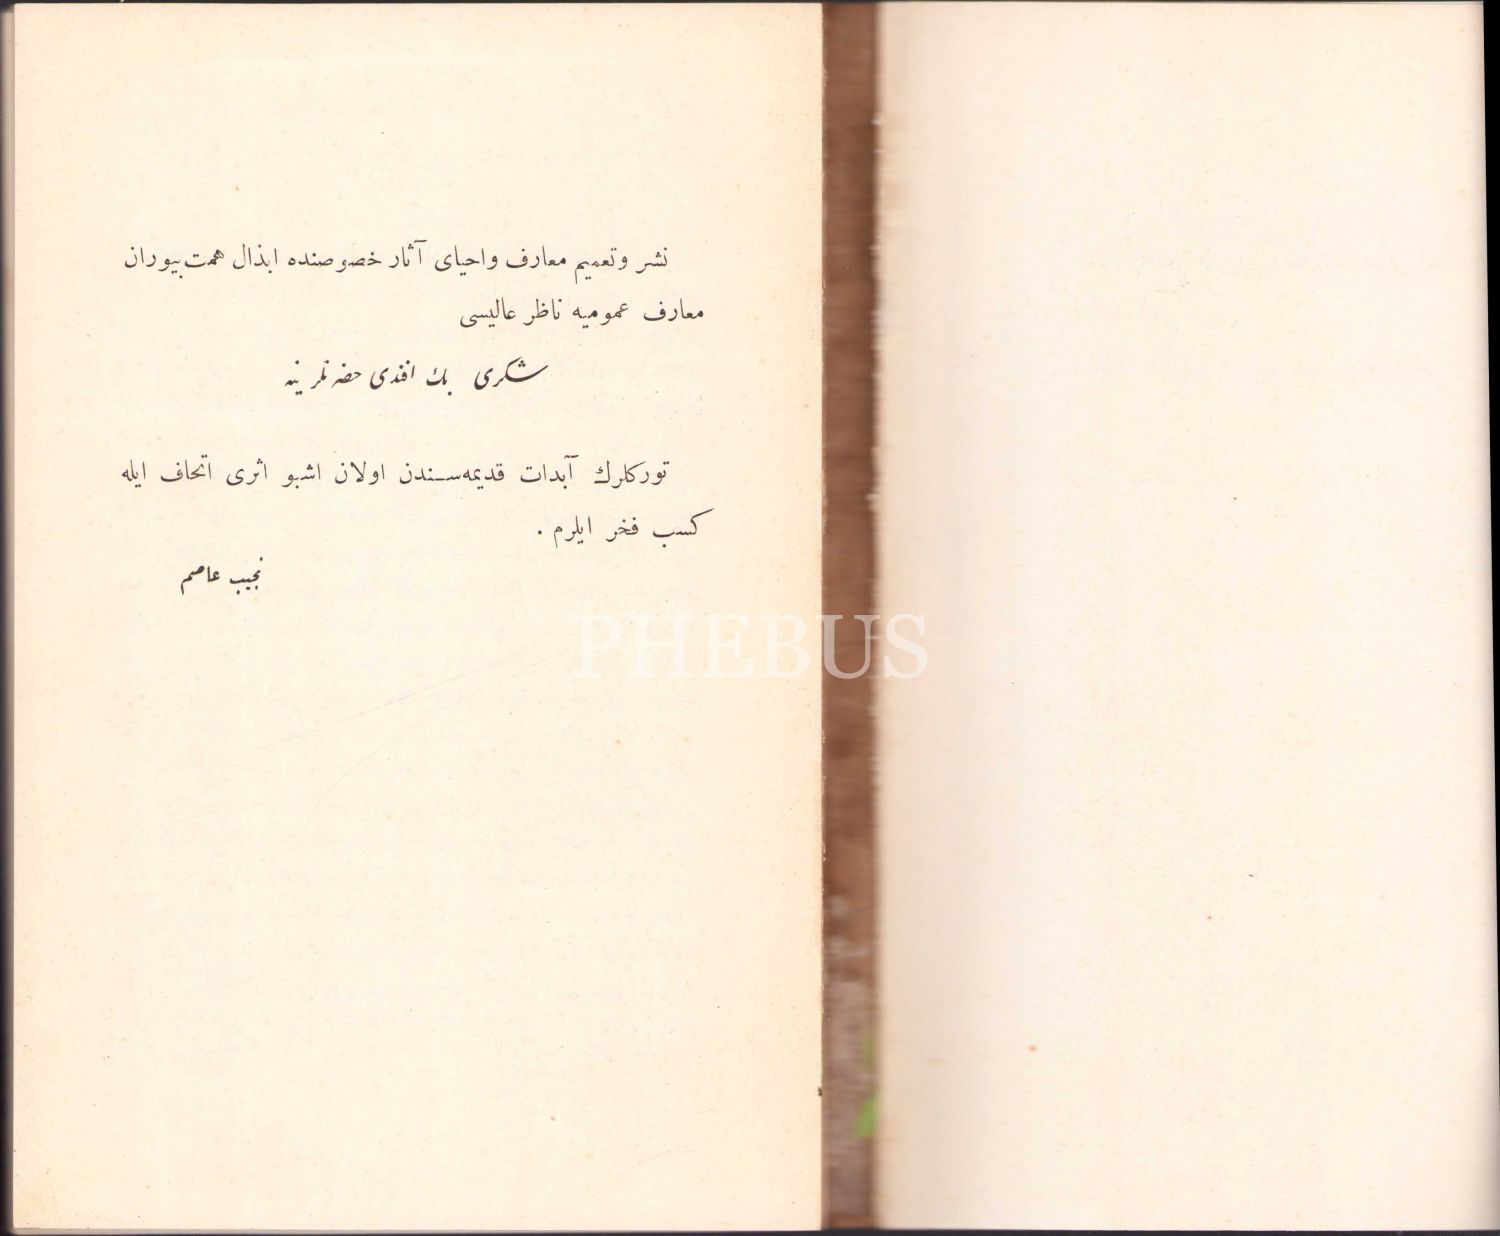 نشر وتعميم معارف واحيای آثار خصوصنده ابذال همت بيوران
معارف عموميه ناظر عاليسی
شكری بك افندی حضرتلرينه
توركلرك آبدات قديمه‌سندن اولان اشبو اثری اتحاف ايله
كسب فخر ايلرم .
نجيب عاصم
PHEBUS